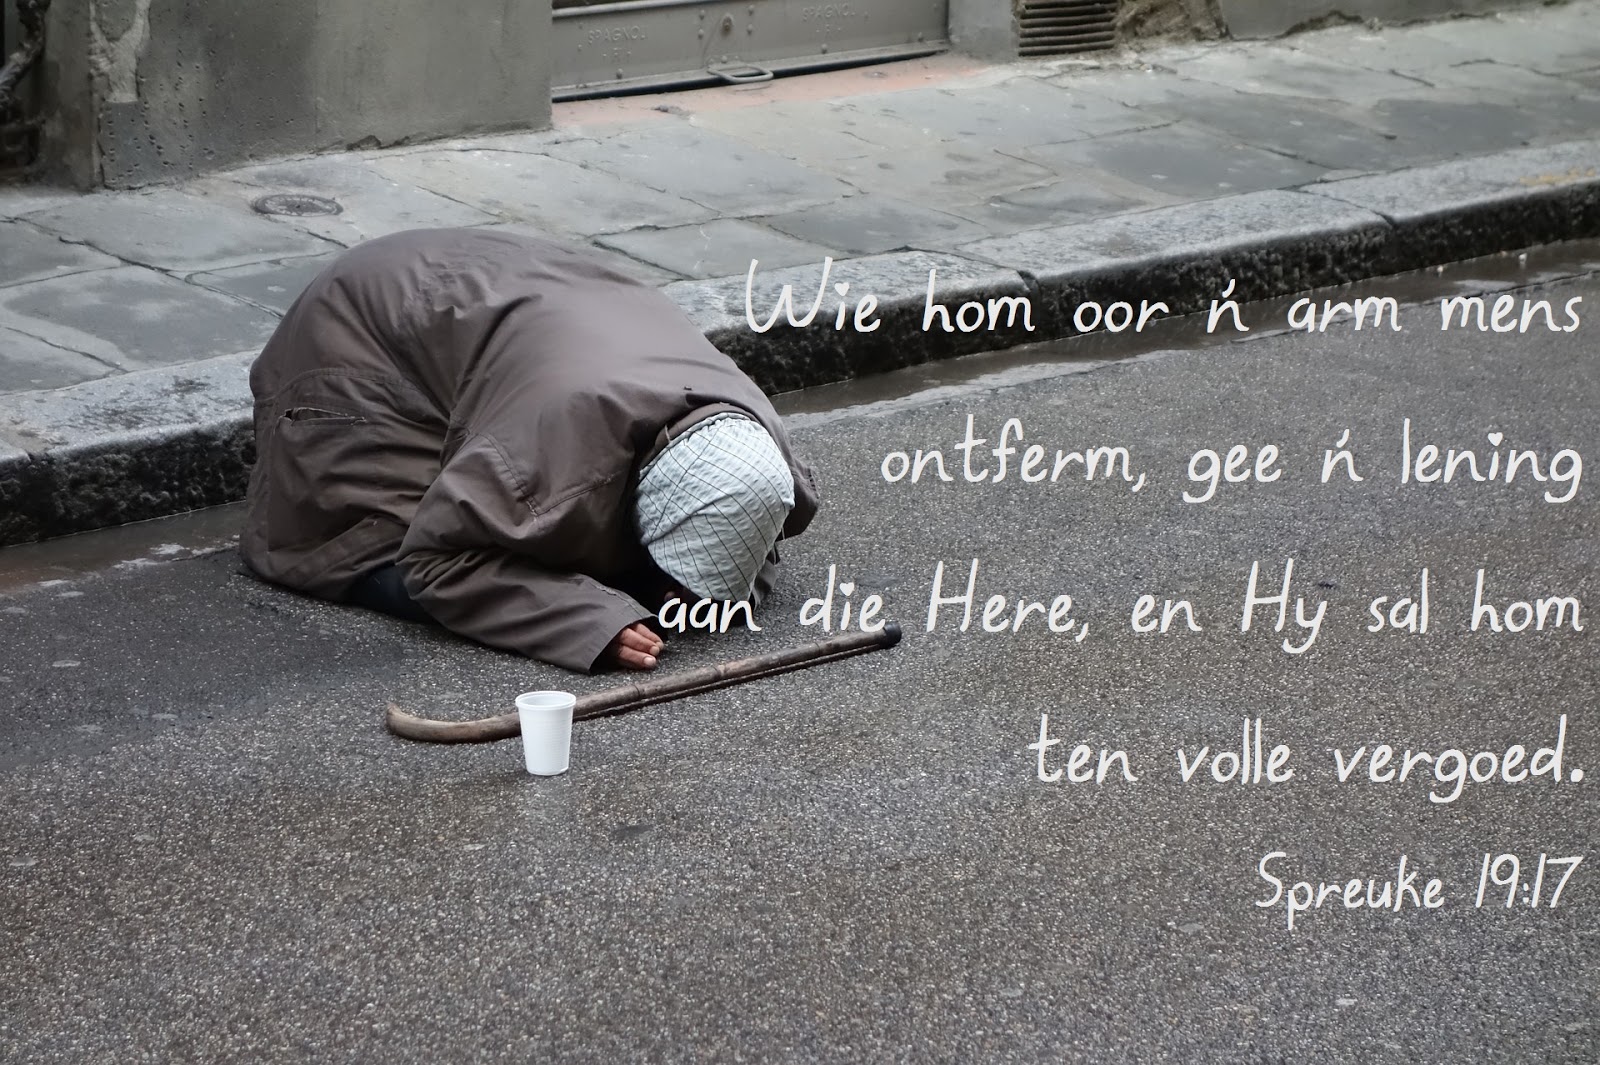 SPAGNOL
SPAGNOL
Wie hom oor ń arm mens
ontferm, gee ń lening
aan die Here, en Hy sal hom
ten volle vergoed.
Spreuke 19:17